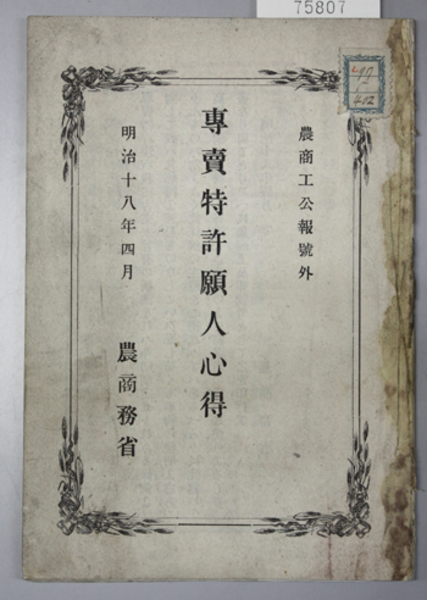 75807
農商工公報號外
專賣特許願人心得
明治十八年四月
農商務省
402